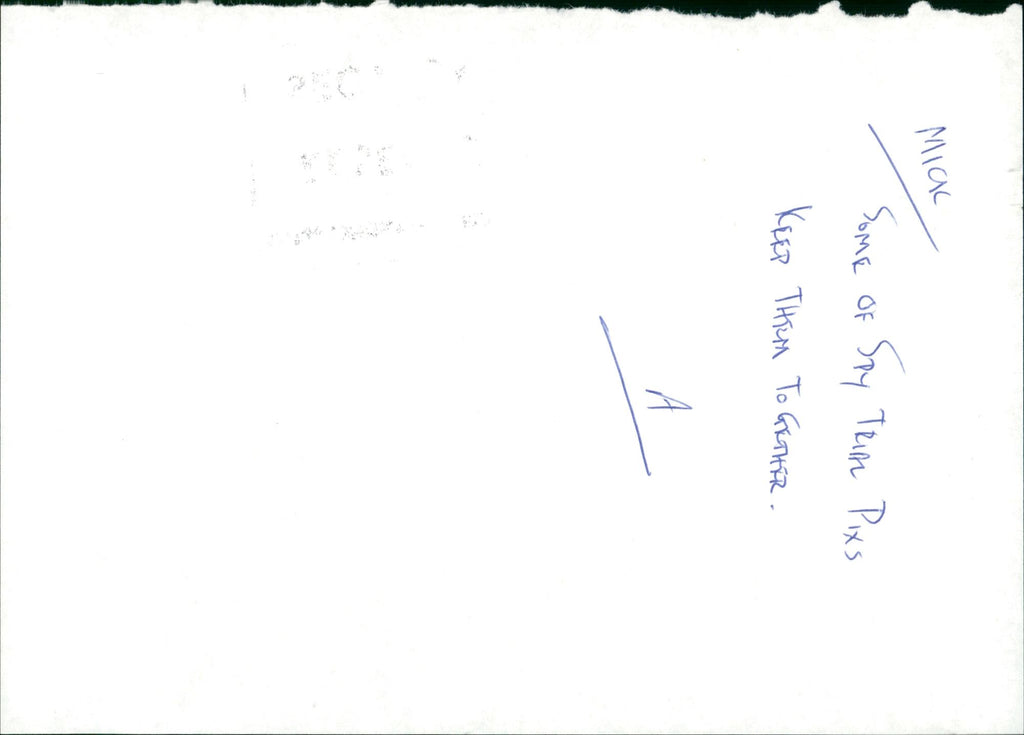 MICK
SOME OF SPY TRIAL PIXS
KEEP THEM TOGETHER.
A